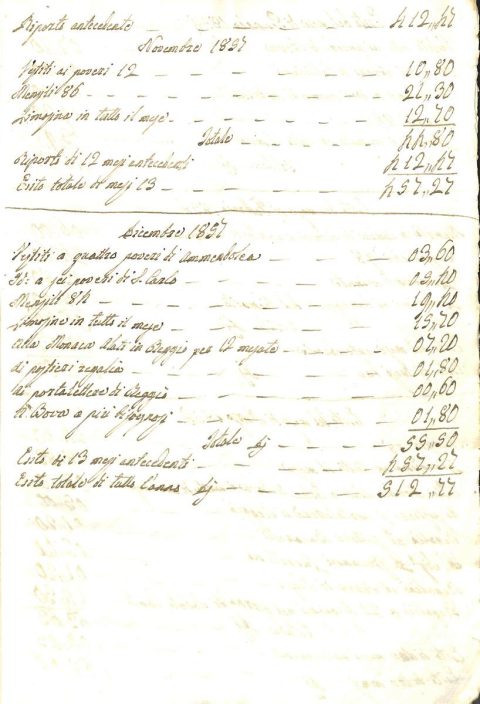 Riporto antecedente — — — — 412,,47
Novembre 1857
Vestiti ai poveri 12 — — — — 10,,80
Menzili 86 — — — — 21,,30
Limosina in tutto il mese — — — — 12,,70
Totale — — — — 44,,80
Riporto di 12 mesi antecedenti 412,,47
Esito totale di mesi 13 — — — — 457,,27
Dicembre 1857
Vestiti a quattro poveri di Ammendolea — — 03,,60
Id: a sei poveri di S. Carlo — — — 05,,40
Menzili 84 — — — — 19,,40
Limosine in tutto il mese — — — — 15,,70
Alla Monaca in Reggio per 12 mesate — — — 07,,20
di regalia — — — — 01,,80
Ai portalettere di Reggio — — — — 00,,60
A Bova a più bisognosi — — — — 01,,80
Totale — — — 55,,50
Esito di 13 mesi antecedenti — — — — 457,,27
Esito totale di tutto l'anno — — — 512,,77